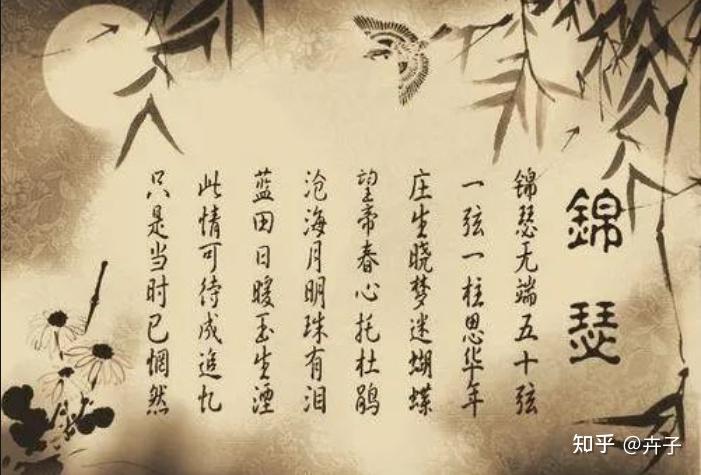 錦瑟
锦瑟无端五十弦
一弦一柱思华年
庄生晓梦迷蝴蝶
望帝春心托杜鹃
沧海月明珠有泪
蓝田日暖玉生湮
此情可待成追忆
只是当时已惘然
知乎 @卉子